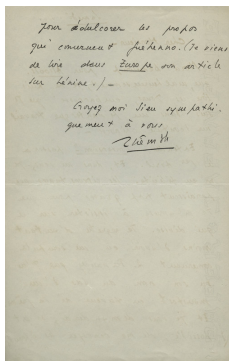 pour édulcorer les propos
qui concernent Guéhenno. (Je viens
de lire dans Europe son article
sur Lénine.) –
Croyez moi bien sympathi-
quement à vous